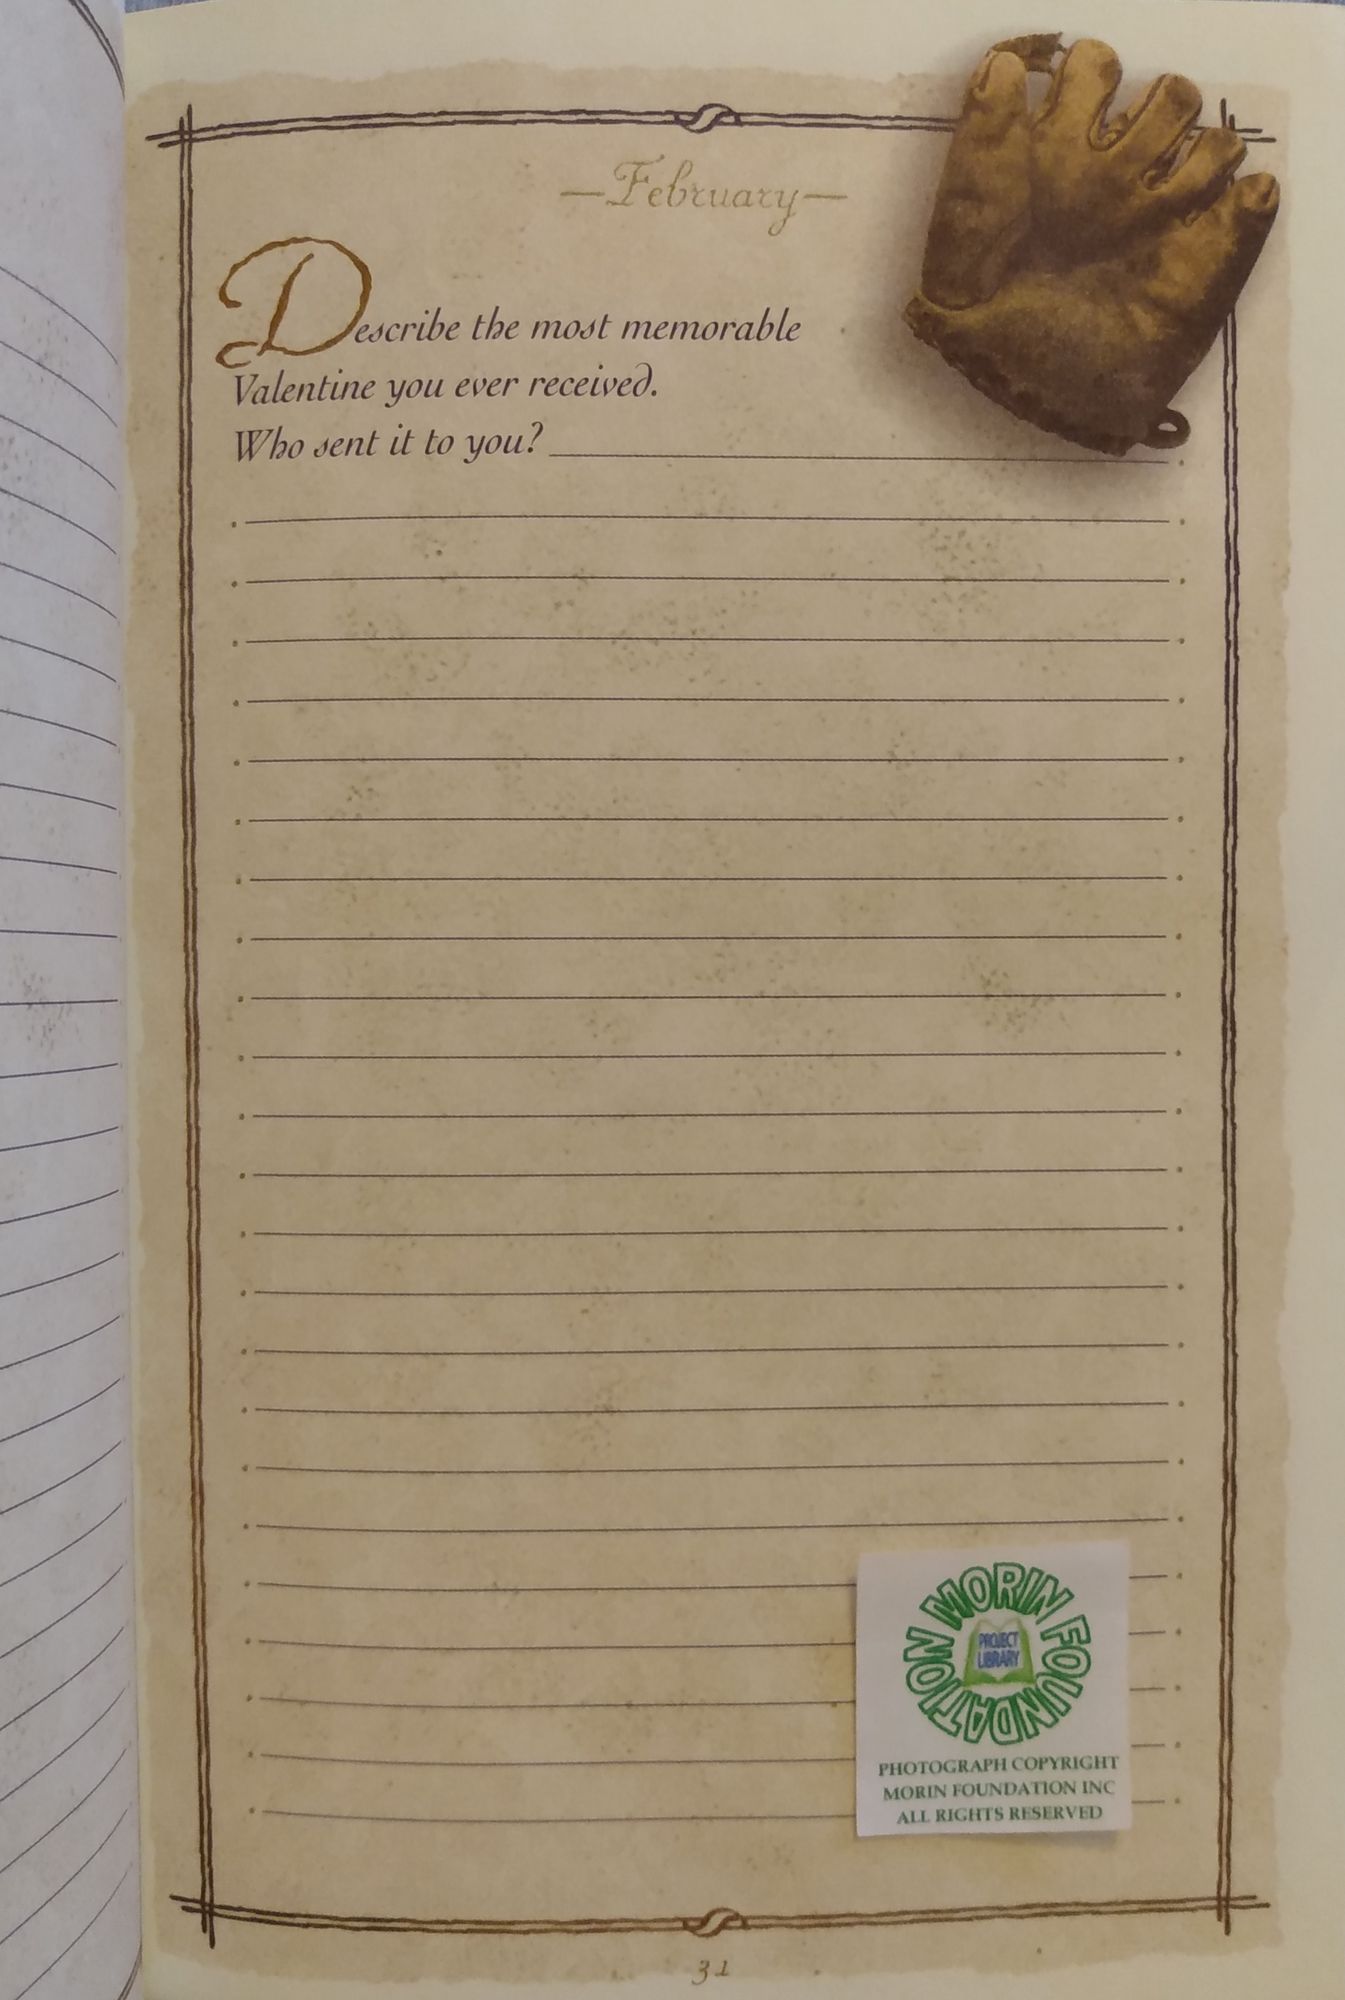 —February—
Describe the most memorable
Valentine you ever received.
Who sent it to you?
MORIN FOUNDATION
PROJECT
LIBRARY
PHOTOGRAPH COPYRIGHT
MORIN FOUNDATION INC
ALL RIGHTS RESERVED
31